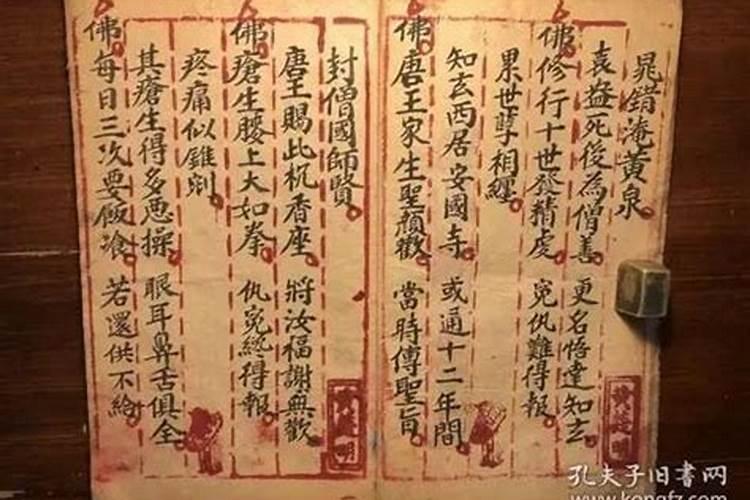 晁錯淹黄泉
袁盎死後為僧善 更名悟達知玄
佛修行十世發精虔 寃仇難得報
累世孽相纏
知玄西居安國寺 或通十二年間
佛唐王家生聖顏歡 當時傳聖旨
封僧國師賢
唐王賜此杌香座 將汝福謝無歡
佛瘡生腰上大如拳 仇寃終得報
疼痛似錐剜
其瘡生得多恶操 眼耳鼻舌俱全
佛每日三次要飯飡 若還供不給
孔夫子旧书网